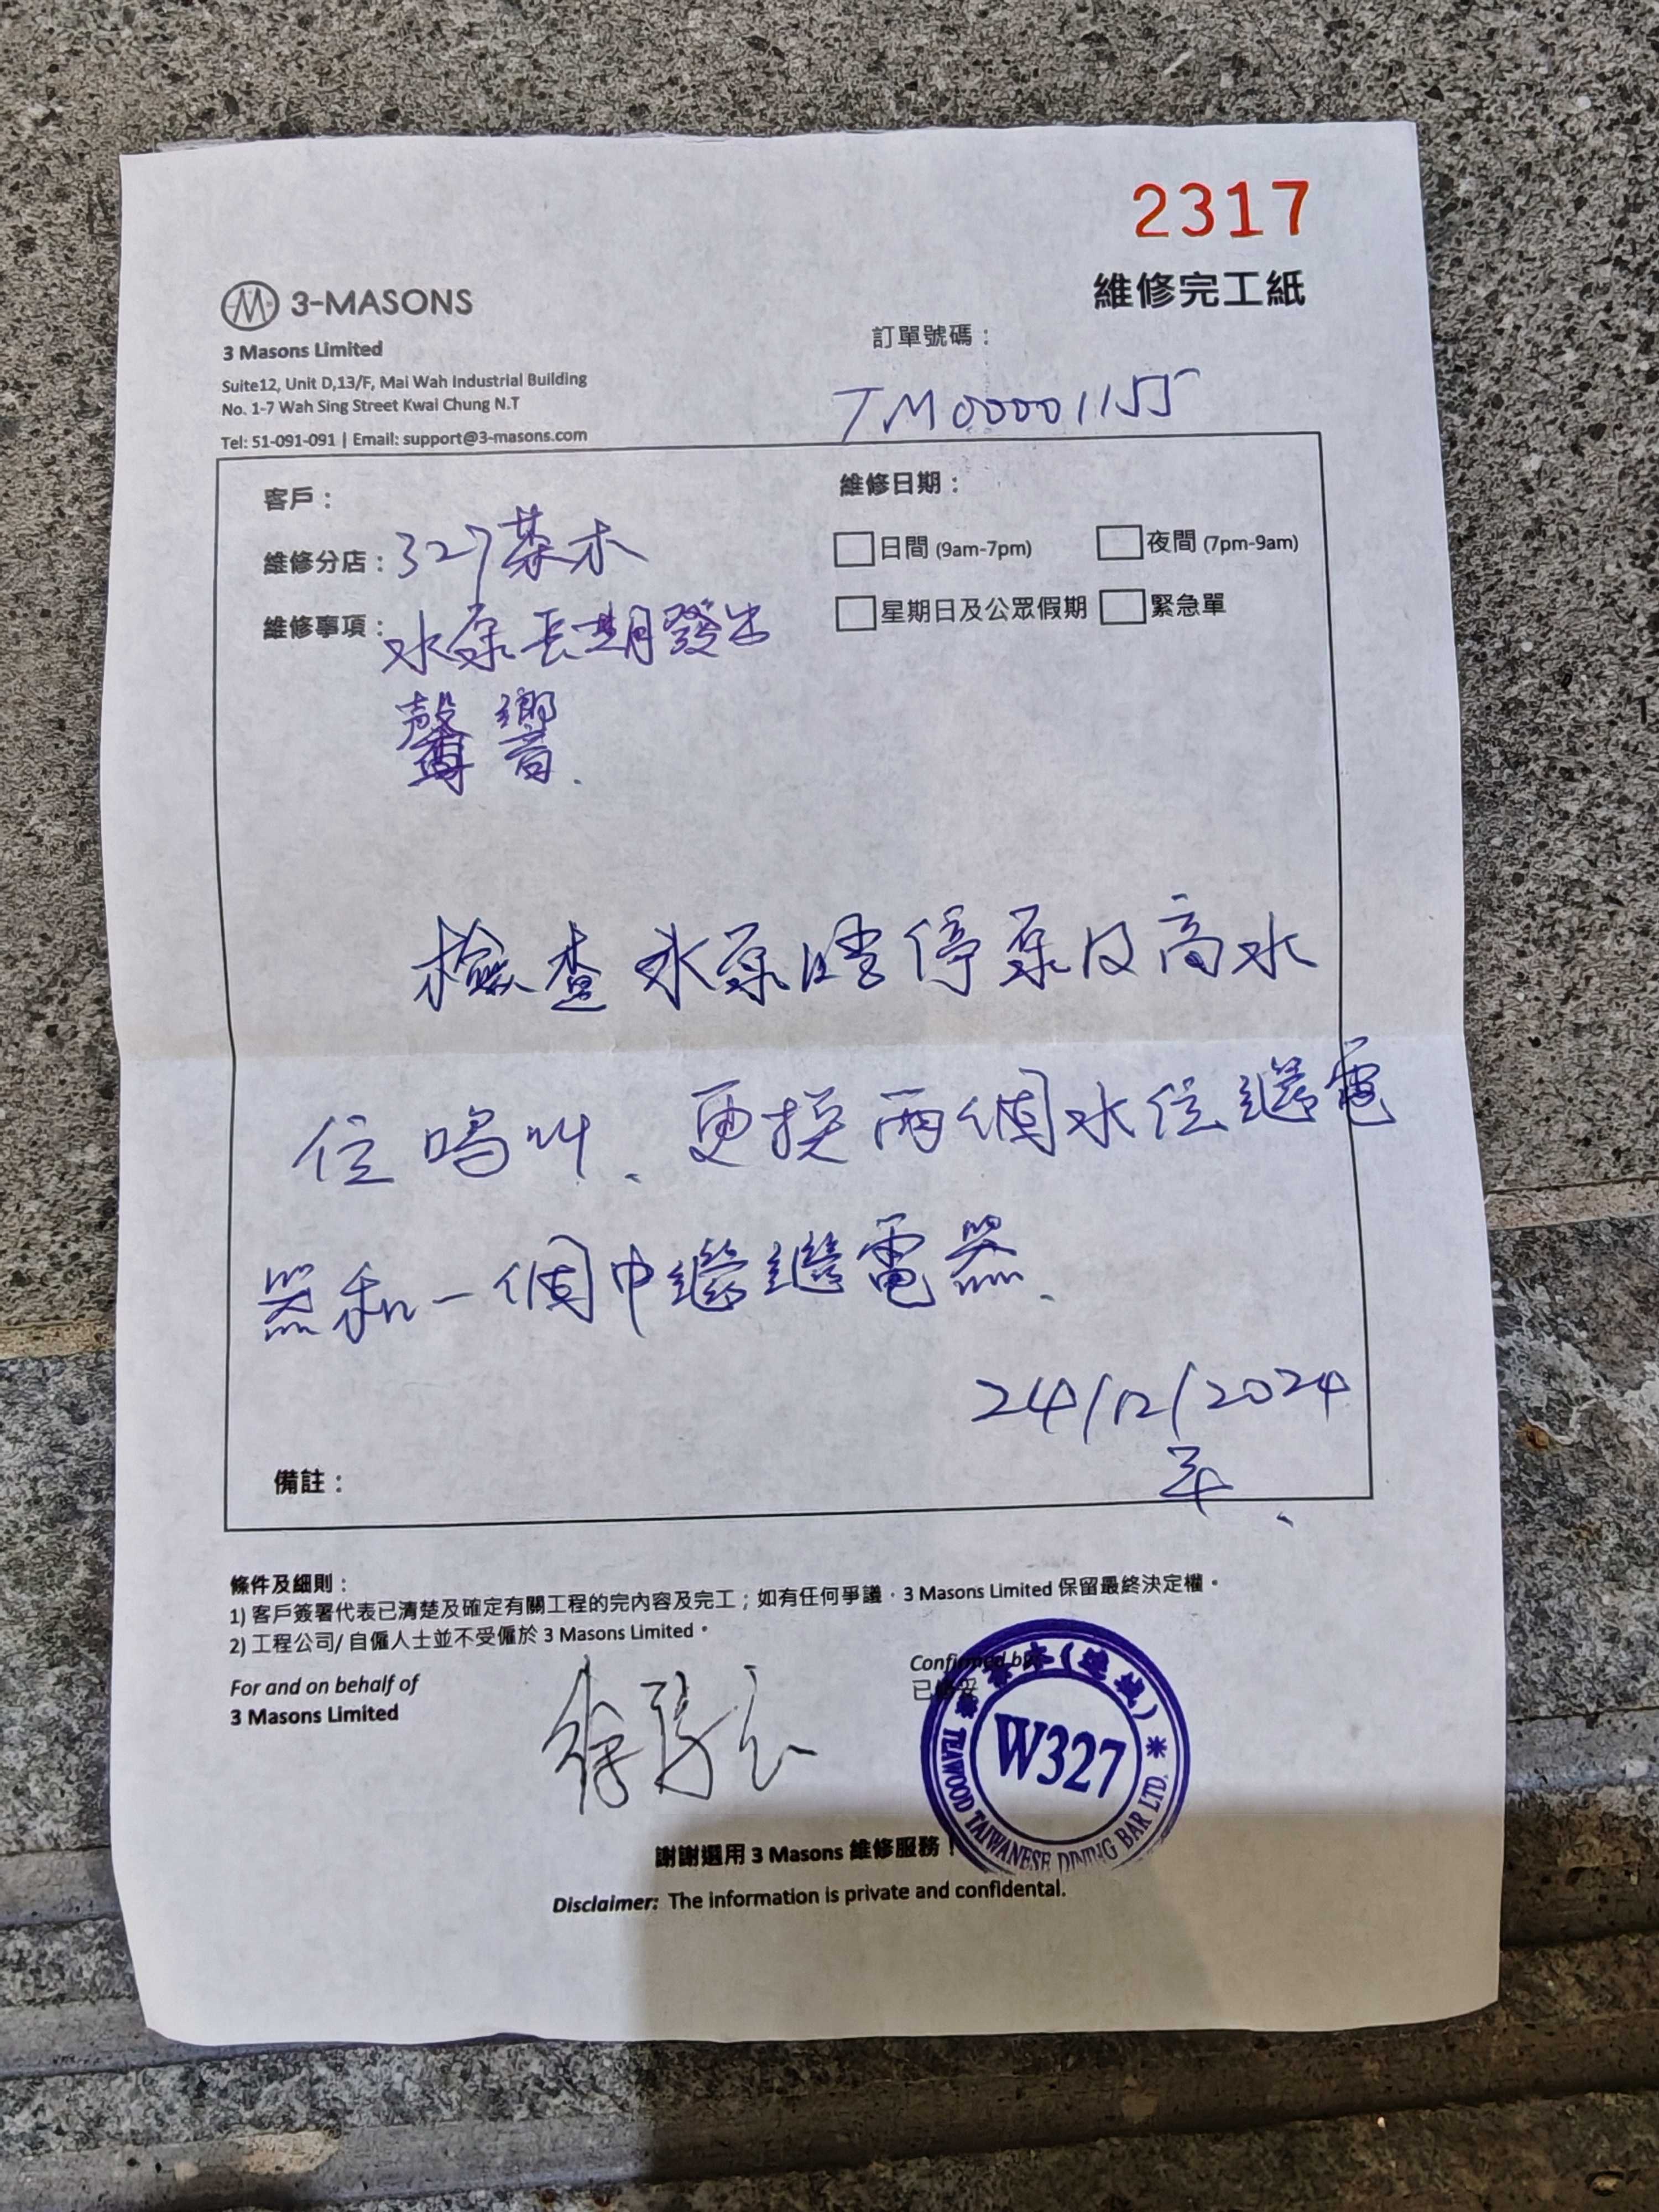 2317
維修完工紙
3-MASONS
3 Masons Limited
Suite12, Unit D,13/F, Mai Wah Industrial Building
No. 1-7 Wah Sing Street Kwai Chung N.T
Tel: 51-091-091 | Email: support@3-masons.com
訂單號碼：
TM00001155
客戶：
維修分店：327茶木
維修事項：水泵長期發出
響.
維修日期：
日間 (9am-7pm)
夜間 (7pm-9am)
星期日及公眾假期
緊急單
檢查水泵唔停泵及高水
位鳴叫. 更換兩個水位繼電
器和一個中繼繼電器.
24/12/2024
年.
備註：
條件及細則：
1) 客戶簽署代表已清楚及確定有關工程的完內容及完工；如有任何爭議，3 Masons Limited 保留最終決定權。
2) 工程公司/ 自僱人士並不受僱於 3 Masons Limited。
For and on behalf of
3 Masons Limited
Confirmed by:
茶木
W327
TEAWOOD TAIWANESE DINING BAR LTD.
謝謝選用 3 Masons 維修服務！
Disclaimer: The information is private and confidental.